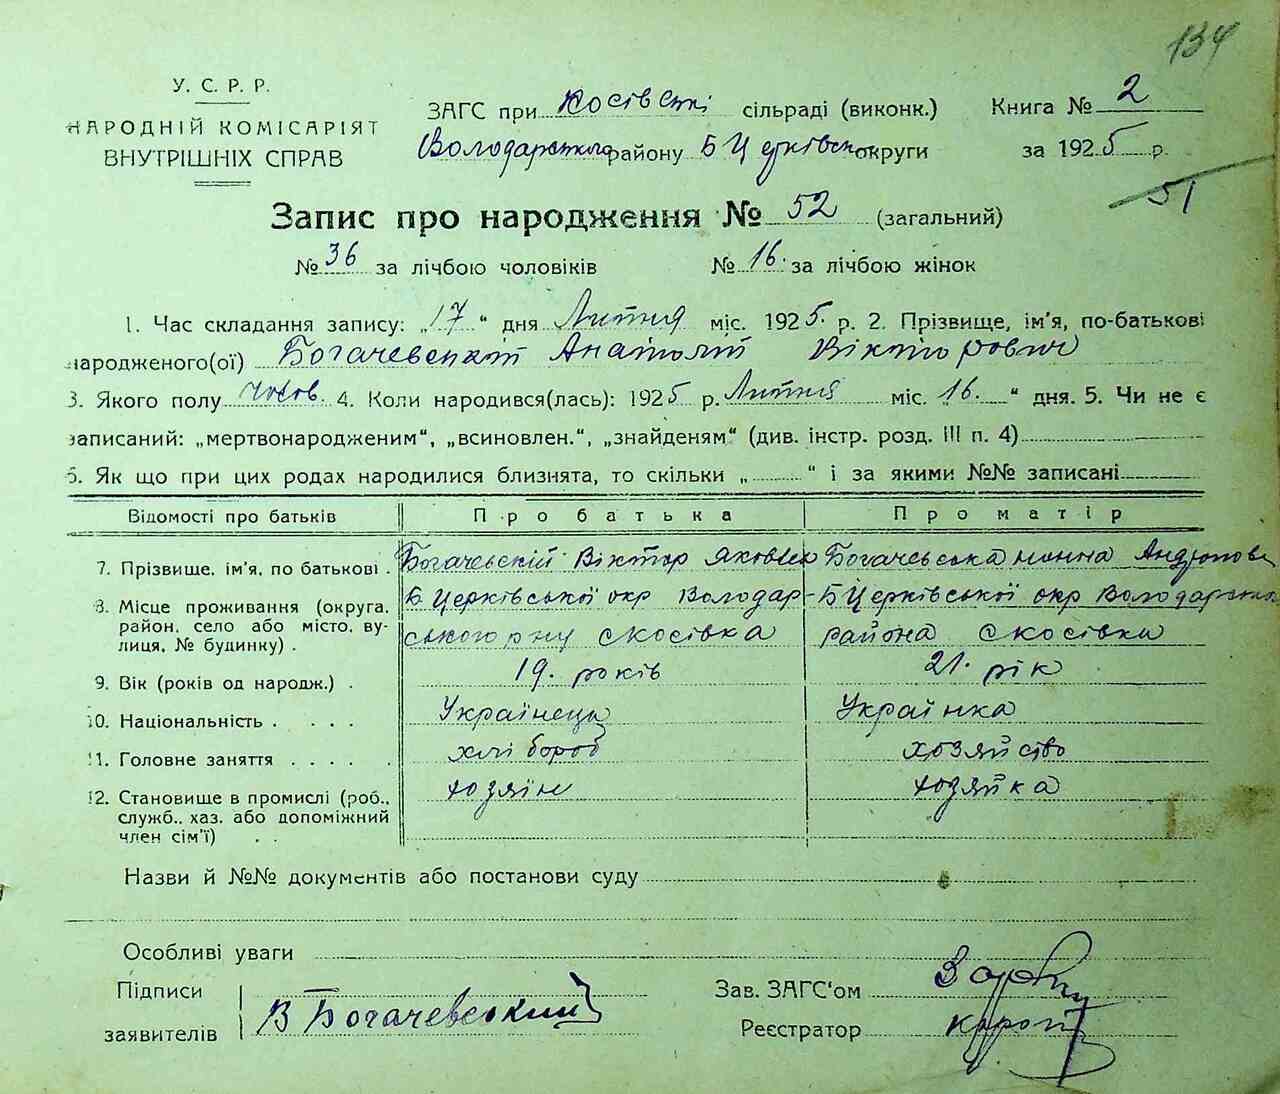 134
У. С. Р. Р.
НАРОДНІЙ КОМІСАРІЯТ
ВНУТРІШНІХ СПРАВ
ЗАГС при Косівскі сільраді (виконк.)
Володарського району БЦерківськ округи
Книга № 2
за 1925 р.
51
Запис про народження № 52 (загальний)
№ 36 за лічбою чоловіків № 16. за лічбою жінок
1. Час складання запису: „17“ дня Лютня міс. 1925. р. 2. Прізвище, ім'я, по-батькові
народженого(ої) Богачевский Анатолій Вікторович
3. Якого полу чолов. 4. Коли народився(лась): 1925 р. Лютня міс. „16.“ дня. 5. Чи не є
записаний: „мертвонародженим“, „всиновлен.“, „знайденям“ (див. інстр. розд. III п. 4)
6. Як що при цих родах народилися близнята, то скільки „ “ і за якими №№ записані
Відомості про батьків Про батька Про матір
7. Прізвище, ім'я, по батькові . Богачевскій Віктор Яковлев Богачевська Андронов
8. Місце проживання (округа, район, село або місто, вулиця, № будинку) .
Б Церківської окр Володар-
ського рну с Косівка
Б Церківської окр Володарсько
района с Косівки
9. Вік (років од народж.) . 19. років 21. рік
10. Національність . . . . Українець Українка
11. Головне заняття . . . . . хлібороб хозяйство
12. Становище в промислі (роб., хозяїн хозяйка
служб., хаз. або допоміжний
член сім'ї) . .
Назви й №№ документів або постанови суду
Особливі уваги
Підписи
заявителів
В Богачевський
Зав. ЗАГС'ом
Реєстратор